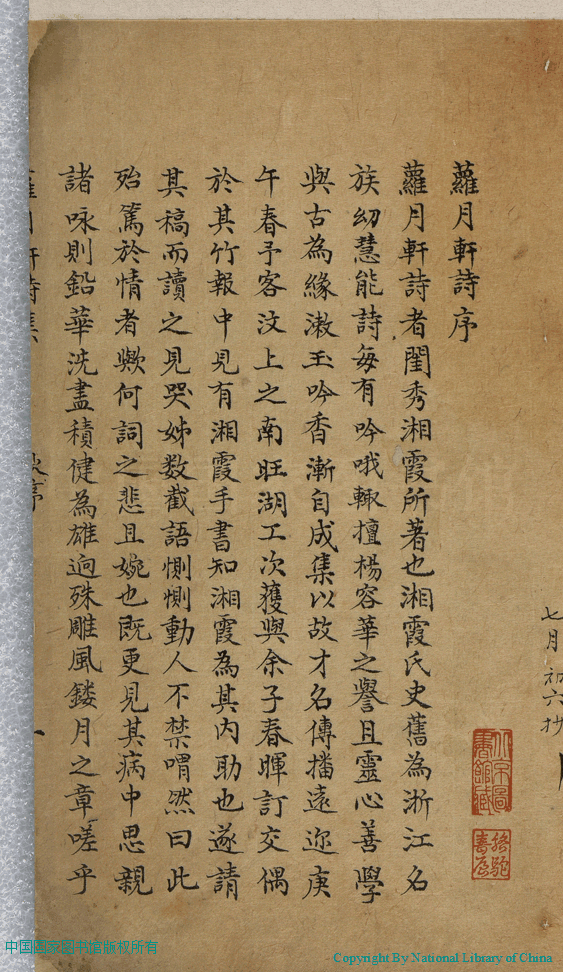 七月初六抄
蘿月軒詩序
蘿月軒詩者閨秀湘霞所著也湘霞氏史舊為浙江名
族幼慧能詩每有吟哦輙擅楊容華之譽且靈心善學
與古為緣漱玉吟香漸自成集以故才名傳播遠迩庚
午春予客汶上之南旺湖工次獲與余子春暉訂交偶
於其竹報中見有湘霞手書知湘霞為其内助也遂請
其稿而讀之見哭姊数截語惻惻動人不禁喟然曰此
殆篤於情者歟何詞之悲且婉也既更見其病中思親
諸咏則鉛華洗盡積健為雄逈殊雕風鏤月之章嗟乎
中国国家图书馆版权所有
Copyright By National Library of China